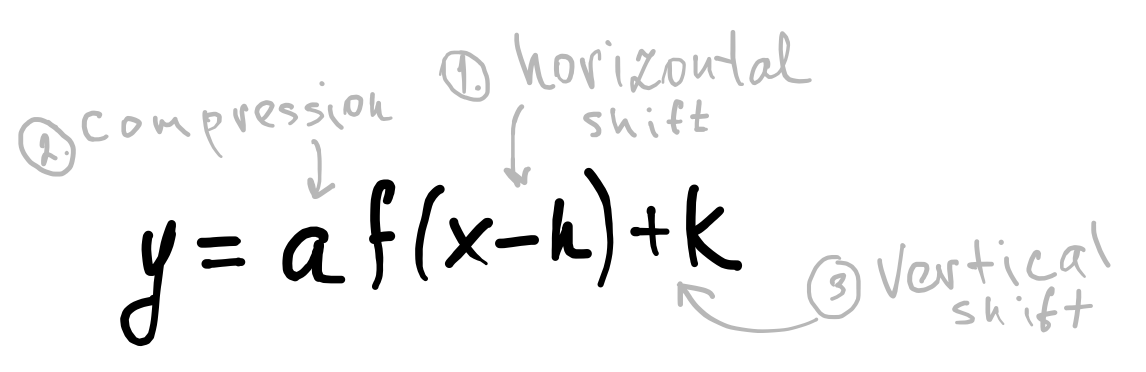 1. horizontal
shift
2. compression
y = a f(x-h)+k
3 Vertical
shift